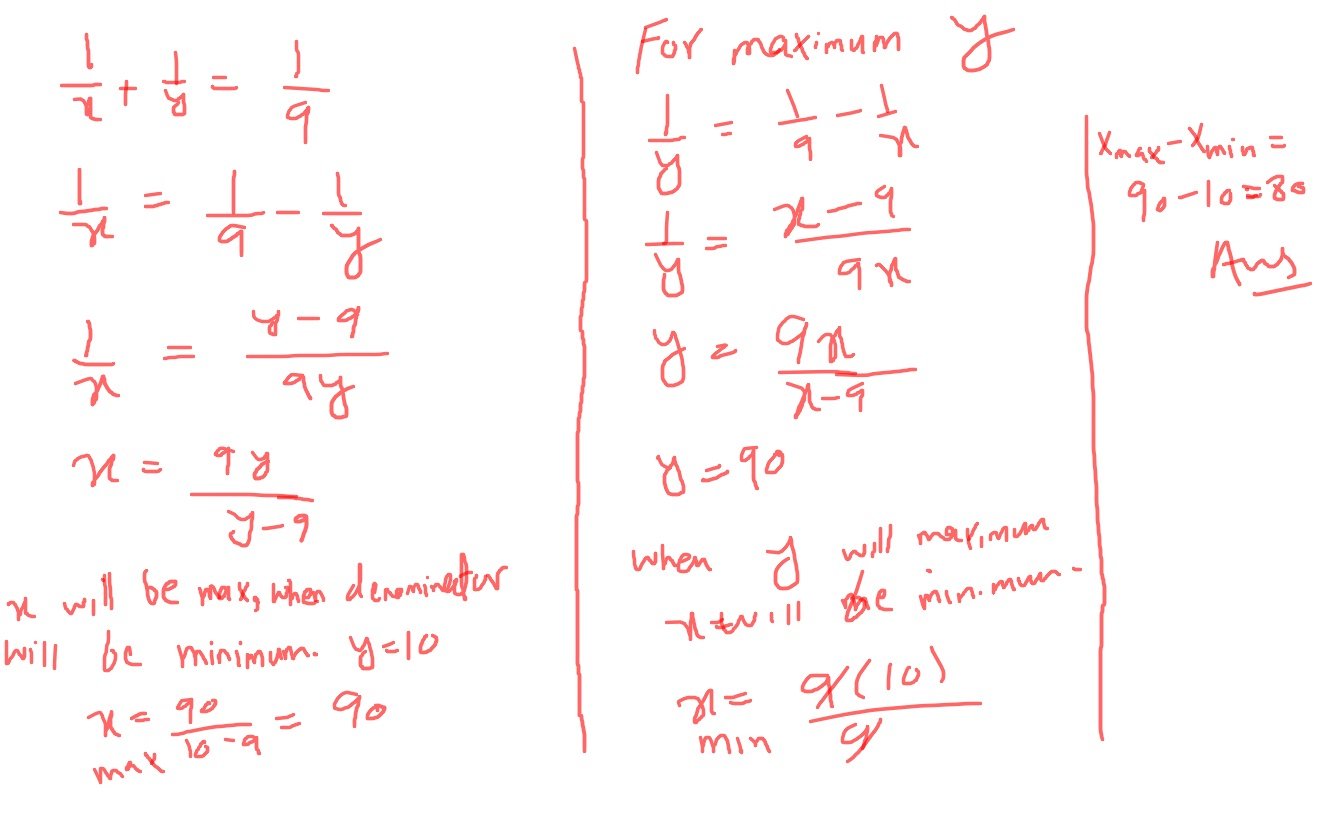 1/x + 1/y = 1/9
1/x = 1/9 - 1/y
1/x = (y - 9)/(9y)
x = 9y/(y-9)
x will be max, when denominator
will be minimum. y=10
x max = 90/(10-9) = 90
For maximum y
1/y = 1/9 - 1/x
1/y = (x-9)/(9x)
y = 9x/(x-9)
y = 90
when y will maximum
x will be minimum.
x min = 9(10)/9
xmax - xmin =
90-10=80
Ans